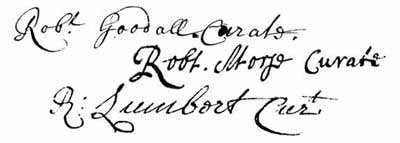 Robt Goodall. Curate.
Robt. Morse Curate
R: Lumbert Curt